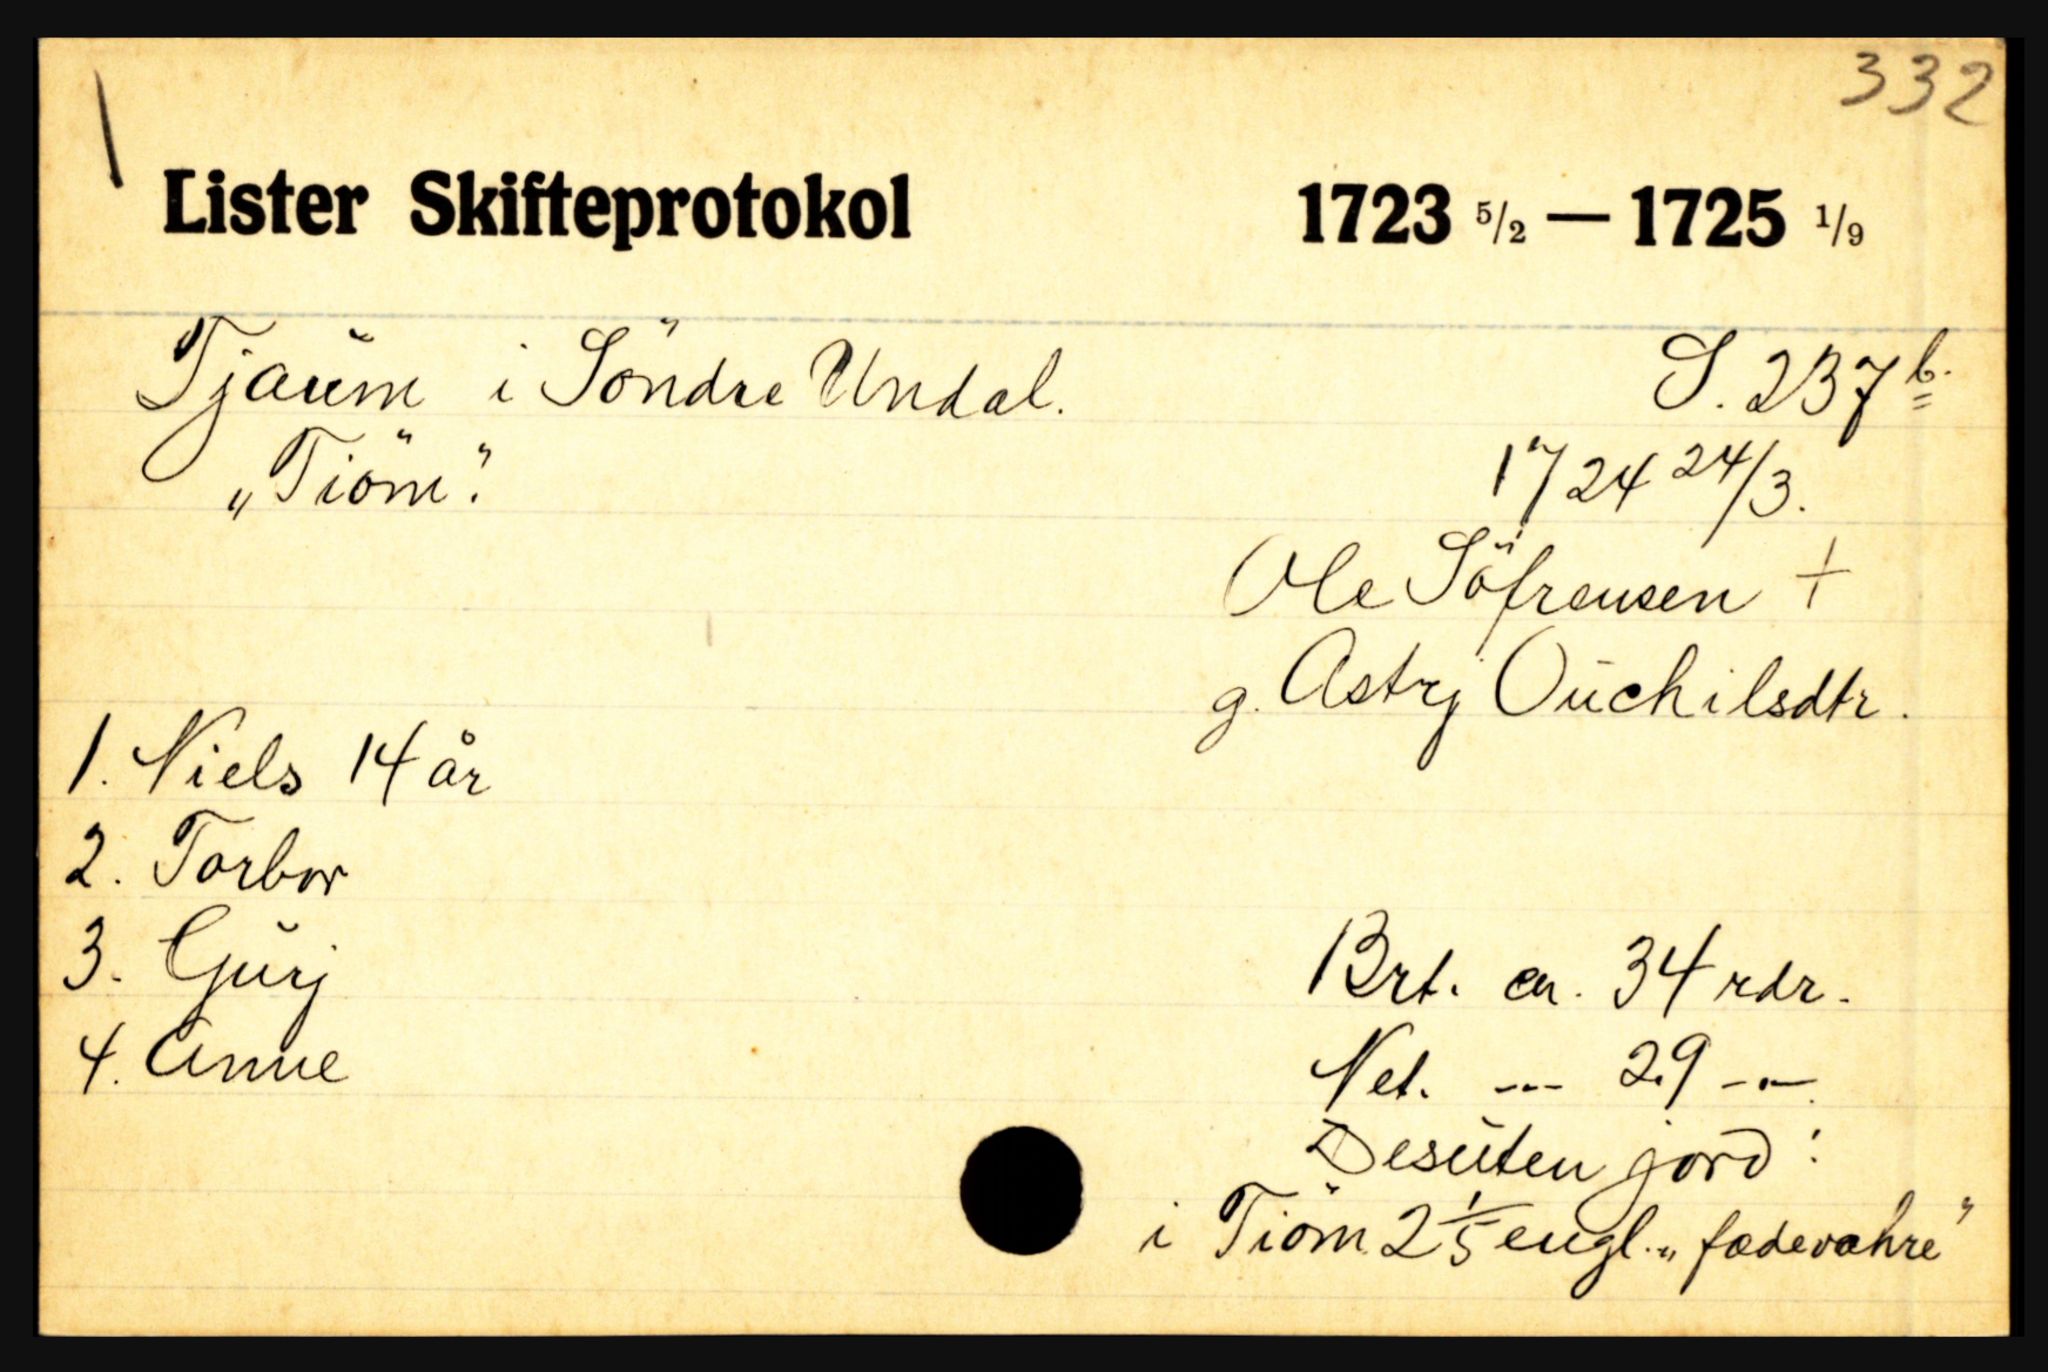 332
Lister Skifteprotokol 1723 5/2 — 1725 1/9
Tjaŭm i Söndre Undal. S. 237 b.
„Tiöm". 1724 24/3.
Ole Söfrensen +
g. Astrj Oŭchilsdtr.
1. Niels 14 år
2. Torbor
3. Gŭrj
4. Anne
Brt. ca. 34 rdr.
Net. --- 29 -.-
Desŭten jord:
i Tiöm 2 1/5 engl. „fædevahre"